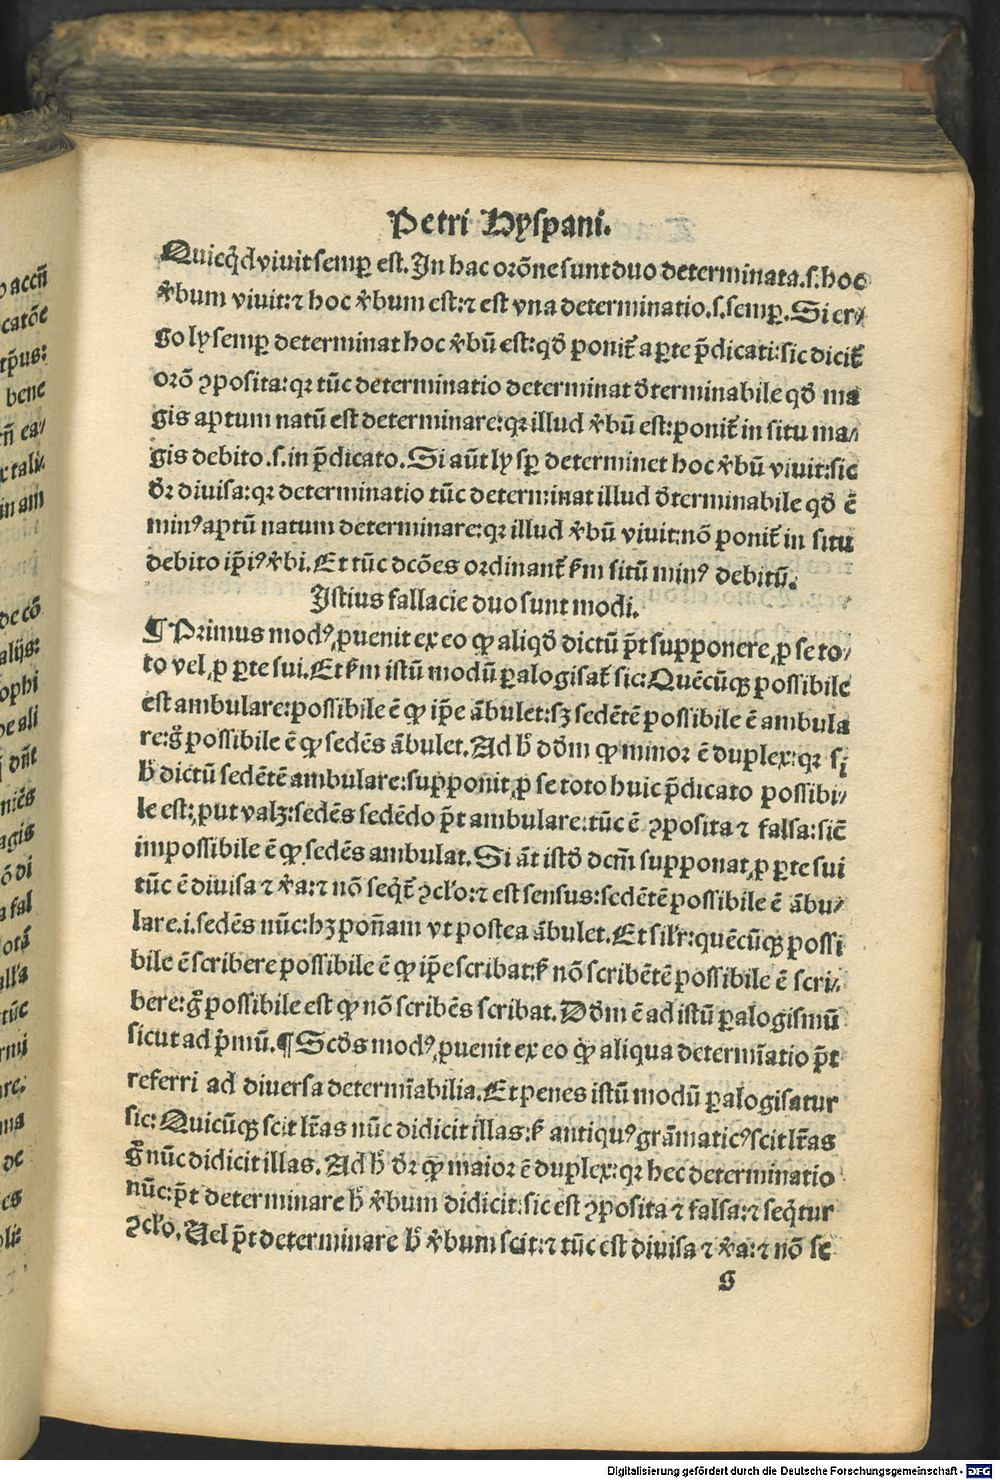 Petri Hyspani.
Quicq̃d viuit semꝑ est. In hac orõne sunt duo determinata.s.hoc
ꝟbum viuit:⁊ hoc ꝟbum est:⁊ est vna determinatio.s.semꝑ. Si er⸗
go ly semꝑ determinat hoc ꝟbũ est:qđ ponit̃ a ꝑte p̃dicati:sic dicit̃
orõ ꝯposita:qꝛ tũc determinatio determinat đterminabile qđ ma
gis aptum natũ est determinare:qꝛ illud ꝟbũ est:ponit̃ in situ ma⸗
gis debito.s.in p̃dicato. Si aũt ly sꝑ determinet hoc ꝟbũ viuit:sic
đr diuisa:qꝛ determinatio tũc determinat illud đterminabile qđ ẽ
minꝰ aptũ natum determinare:qꝛ illud ꝟbũ viuit:nõ ponit̃ in situ
debito ip̃iꝰ ꝟbi. Et tũc dcões ordinant̃ ẜm sitũ minꝰ debitũ.
Istius fallacie duo sunt modi.
¶ Primus modꝰ ꝓuenit ex eo ꝙ aliqđ dictũ p̃t supponere ꝓ se to⸗
to vel ꝓ ꝑte sui. Et ẜm istũ modũ ꝑalogisat̃ sic: Quẽcũqꝫ possibile
est ambulare:possibile ẽ ꝙ ip̃e ãbulet:sꝫ sedẽtẽ possibile ẽ ambula
re:g̃ possibile ẽ ꝙ sedẽs ãbulet. Ad h̃ dđm ꝙ minor ẽ duplex:qꝛ si
h̃ dictũ sedẽtẽ ambulare:supponit ꝓ se toto huic p̃dicato possibi⸗
le est:ꝓut valꝫ:sedẽs sedẽdo p̃t ambulare:tũc ẽ ꝯposita ⁊ falsa:sic̃
impossibile ẽ ꝙ sedẽs ambulat. Si ãt istđ dcm̃ supponat ꝓ ꝑte sui
tũc ẽ diuisa ⁊ ꝟa:⁊ nõ seq̃t̃ ꝯclo:⁊ est sensus:sedẽtẽ possibile ẽ ãbu⸗
lare.i.sedẽs nũc:hꝫ poñam vt postea ãbulet. Et silr:quẽcũqꝫ possi
bile ẽ scribere possibile ẽ ꝙ ip̃e scribat:ẜ nõ scribẽtẽ possibile ẽ scri⸗
bere:g̃ possibile est ꝙ nõ scribẽs scribat. Dđm ẽ ad istũ ꝑalogismũ
sicut ad p̃mũ. ¶ Scđs modꝰ ꝓuenit ex eo ꝙ aliqua determĩatio p̃t
referri ad diuersa determĩabilia. Et penes istũ modũ ꝑalogisatur
sic: Quicũqꝫ scit lr̃as nũc didicit illas:ẜ antiquꝰ grãmaticꝰ scit lr̃as
g̃ nũc didicit illas. Ad h̃ đr ꝙ maior ẽ duplex:qꝛ hec determinatio
nũc:p̃t determinare h̃ ꝟbum didicit:sic est ꝯposita ⁊ falsa:⁊ seq̃tur
ꝯclo. Uel p̃t determinare h̃ ꝟbum scit:⁊ tũc est diuisa ⁊ ꝟa:⁊ nõ se
s
o accñ
catõe
tp̃us:
bene
x tali⸗
in am
de cõ
alijs:
ophi
pe ali
agis
õ di
a fal
tũc
ma
de
es
Digitalisierung gefördert durch die Deutsche Forschungsgemeinschaft - DFG